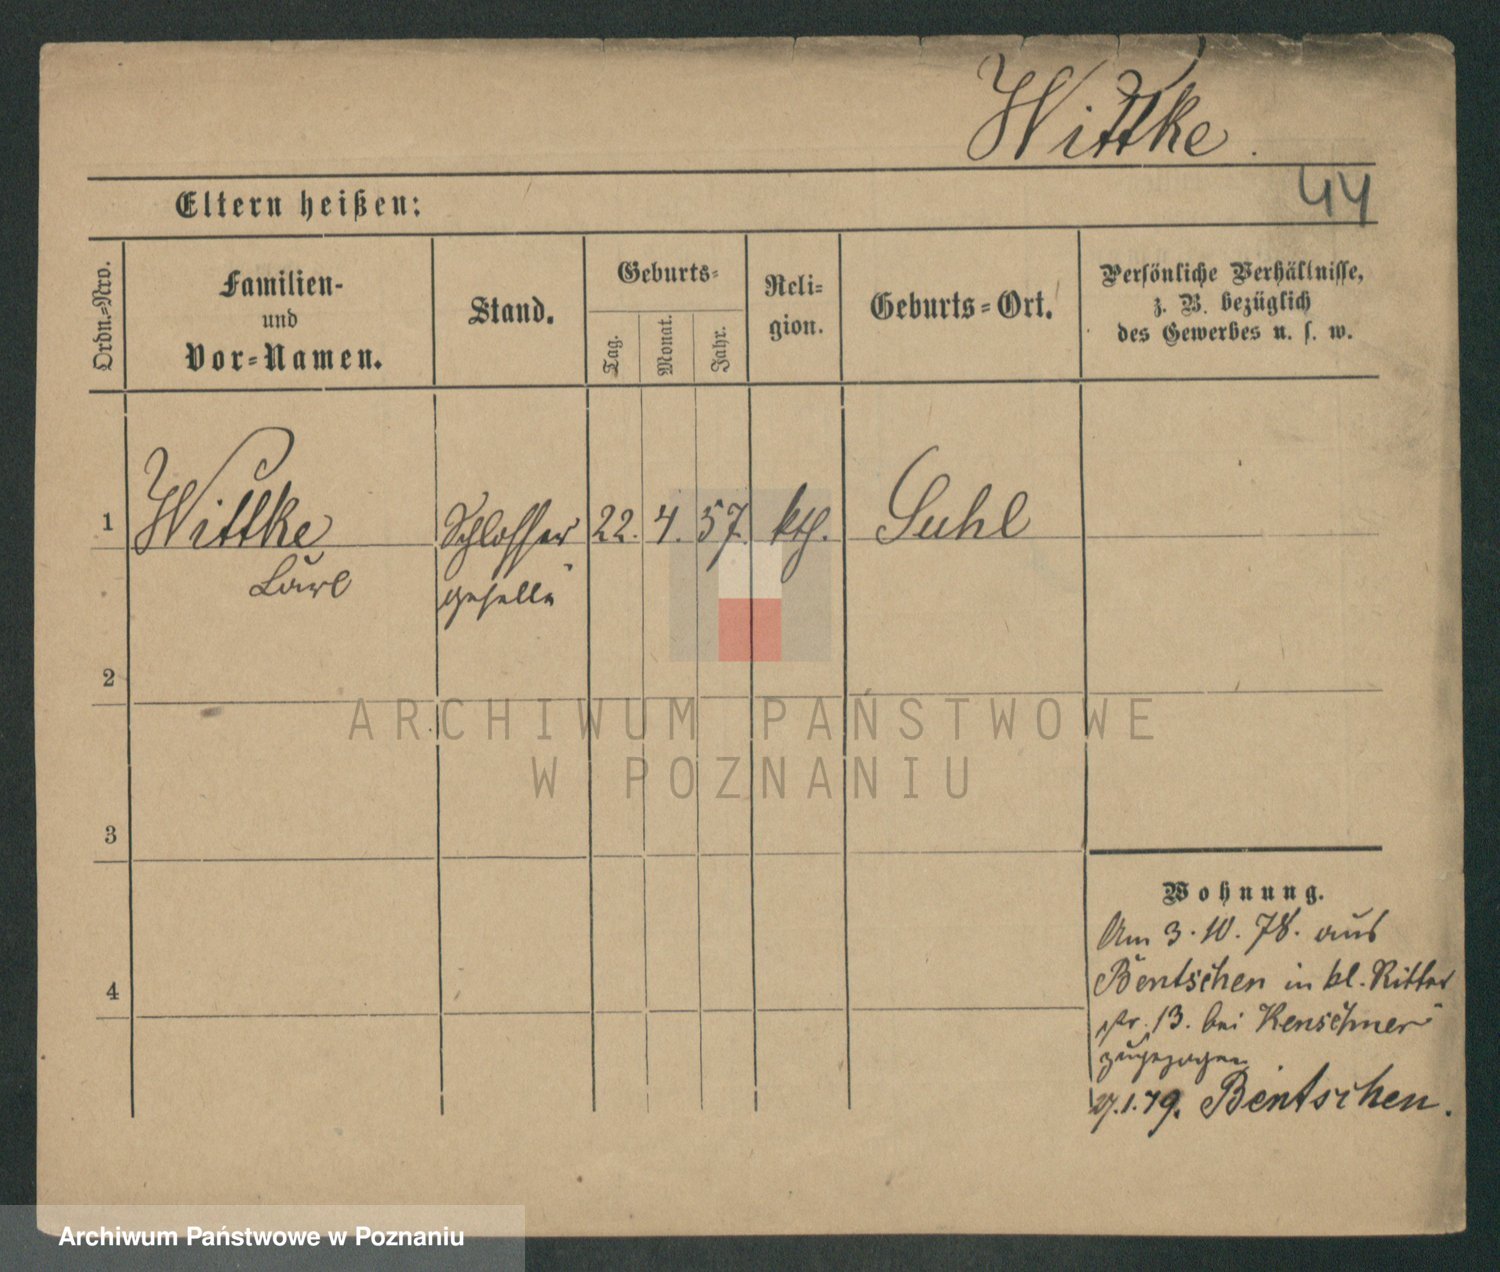 Wittke.
44
Eltern heißen:
Ordn.-Nro.
Familien-
und
Vor-Namen.
Stand.
Geburts-
Tag.
Monat.
Jahr.
Reli-
gion.
Geburts-Ort.
Persönliche Verhältnisse,
z. B. bezüglich
des Gewerbes u. s. w.
1
Wittke
Carl
Schlosser
geselle
22.
4.
57.
kth.
Suhl
2
3
4
Wohnung.
Am 3.10.78. aus
Bentschen in kl. Ritter
str. 13. bei
zugezogen
.1.79. Bentschen.
ARCHIWUM PAŃSTWOWE
W POZNANIU
Archiwum Państwowe w Poznaniu